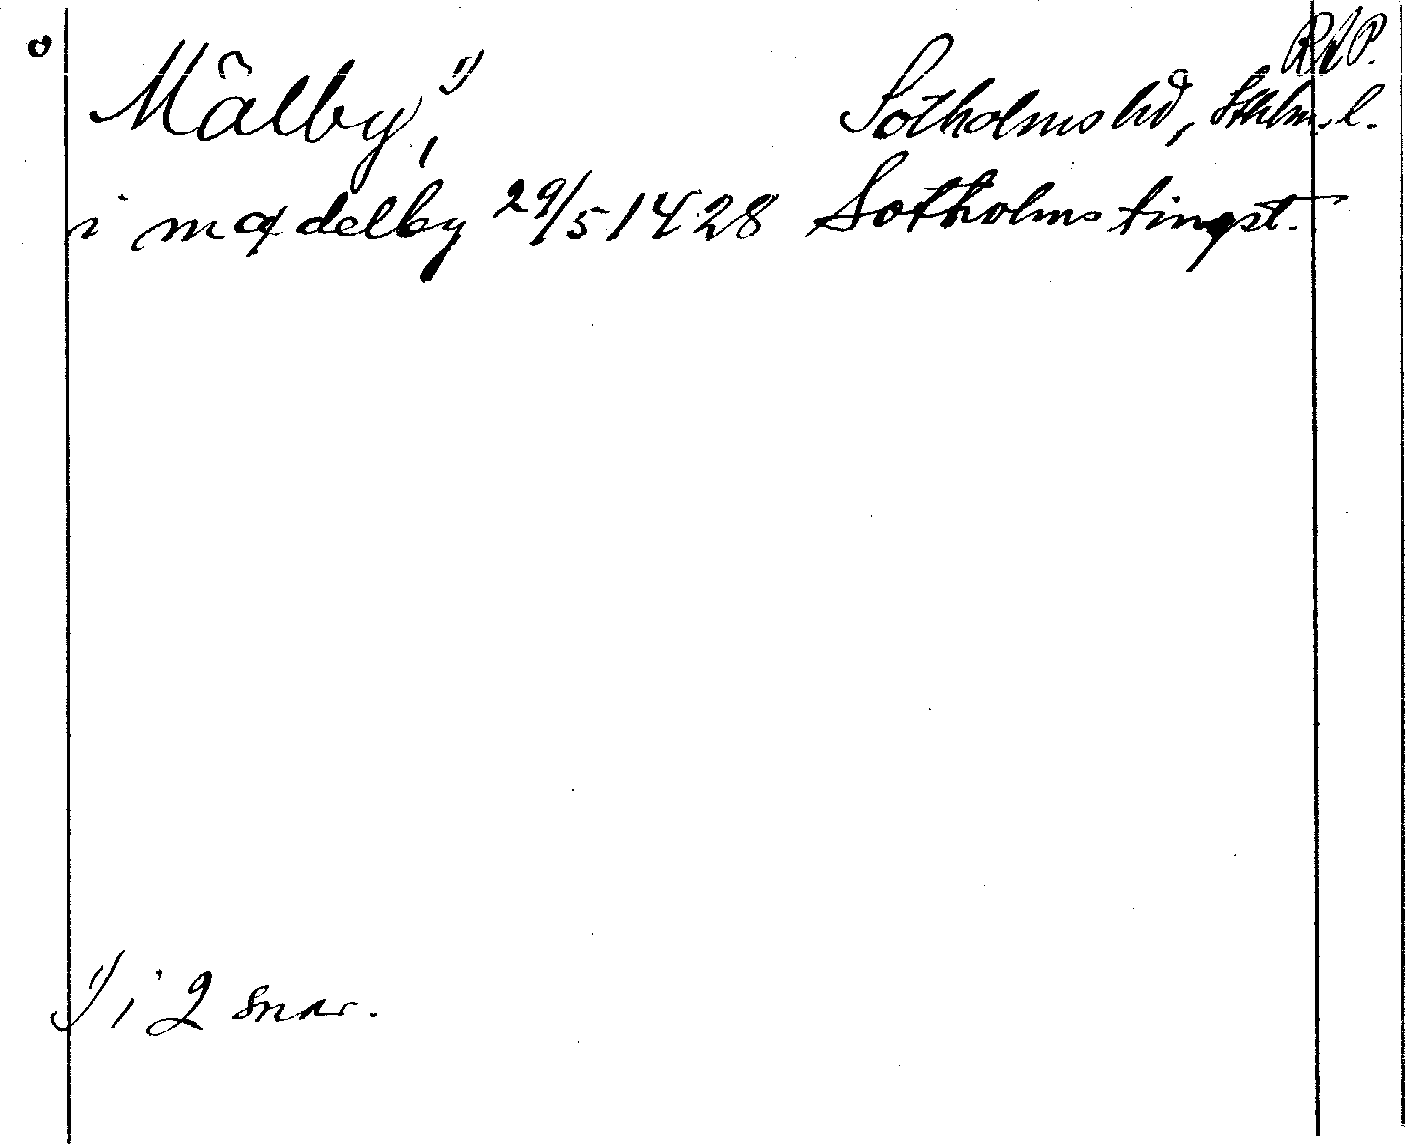 RAP.
Mälby, 1) Sotholms hd, Sthlm. l.
i mædelby 29/5 1428 Sotholms tingst.
1) i 2 snar.